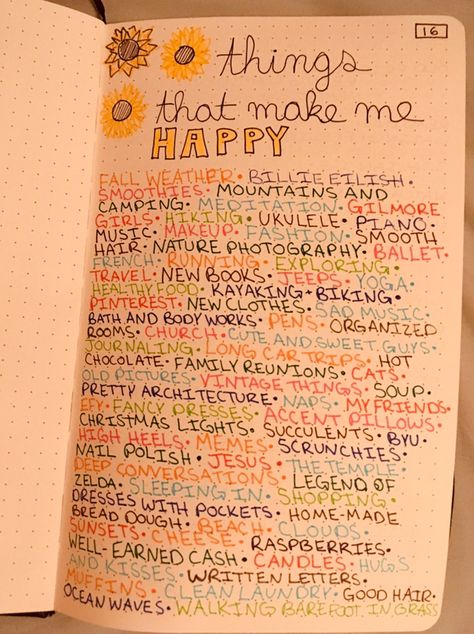 16
things
that make me
HAPPY
FALL WEATHER • BILLIE EILISH •
SMOOTHIES • MOUNTAINS AND
CAMPING • MEDITATION • GILMORE
GIRLS • HIKING • UKULELE • PIANO •
MUSIC • MAKEUP • FASHION • SMOOTH
HAIR • NATURE PHOTOGRAPHY • BALLET •
FRENCH • RUNNING • EXPLORING •
TRAVEL • NEW BOOKS • JEEPS • YOGA •
HEALTHY FOOD • KAYAKING + BIKING •
PINTEREST • NEW CLOTHES • SAD MUSIC •
BATH AND BODY WORKS • PENS • ORGANIZED
ROOMS • CHURCH • CUTE AND SWEET GUYS •
JOURNALING • LONG CAR TRIPS • HOT
CHOCOLATE • FAMILY REUNIONS • CATS •
OLD PICTURES • VINTAGE THINGS • SOUP •
PRETTY ARCHITECTURE • NAPS • MY FRIENDS •
EFY • FANCY DRESSES • ACCENT PILLOWS •
CHRISTMAS LIGHTS • SUCCULENTS • BYU •
HIGH HEELS • MEMES • SCRUNCHIES •
NAIL POLISH • JESUS • THE TEMPLE •
DEEP CONVERSATIONS • LEGEND OF
ZELDA • SLEEPING IN • SHOPPING •
DRESSES WITH POCKETS • HOME-MADE
BREAD DOUGH • BEACH • CLOUDS •
SUNSETS • CHEESE • RASPBERRIES •
WELL-EARNED CASH • CANDLES • HUGS
AND KISSES • WRITTEN LETTERS •
MUFFINS • CLEAN LAUNDRY • GOOD HAIR •
OCEAN WAVES • WALKING BAREFOOT IN GRASS